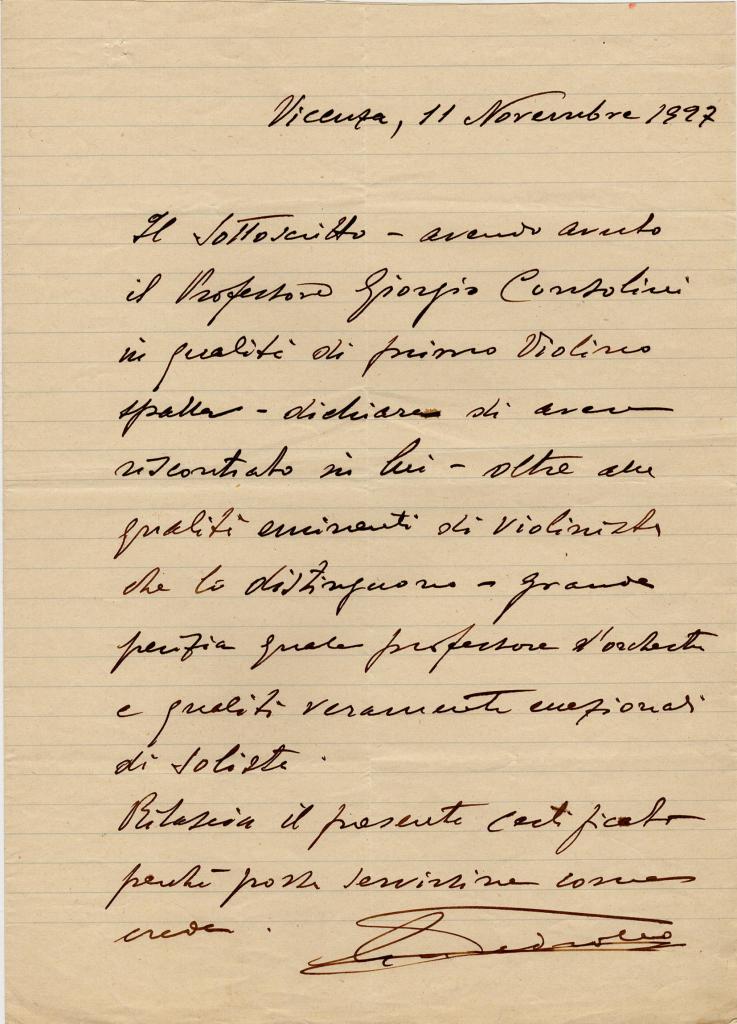 Vicenza, 11 Novembre 1927
Il Sottoscritto - avendo avuto
il Professore Giorgio Consolini
in qualità di primo Violino
spalla - dichiara di aver
riscontrato in lui - oltre alle
qualità eminenti di violinista
che lo distinguono - grande
perizia quale professore d'orchestra
e qualità veramente eccezionali
di solista.
Rilascia il presente certificato
perché possa servirsene come
crede.